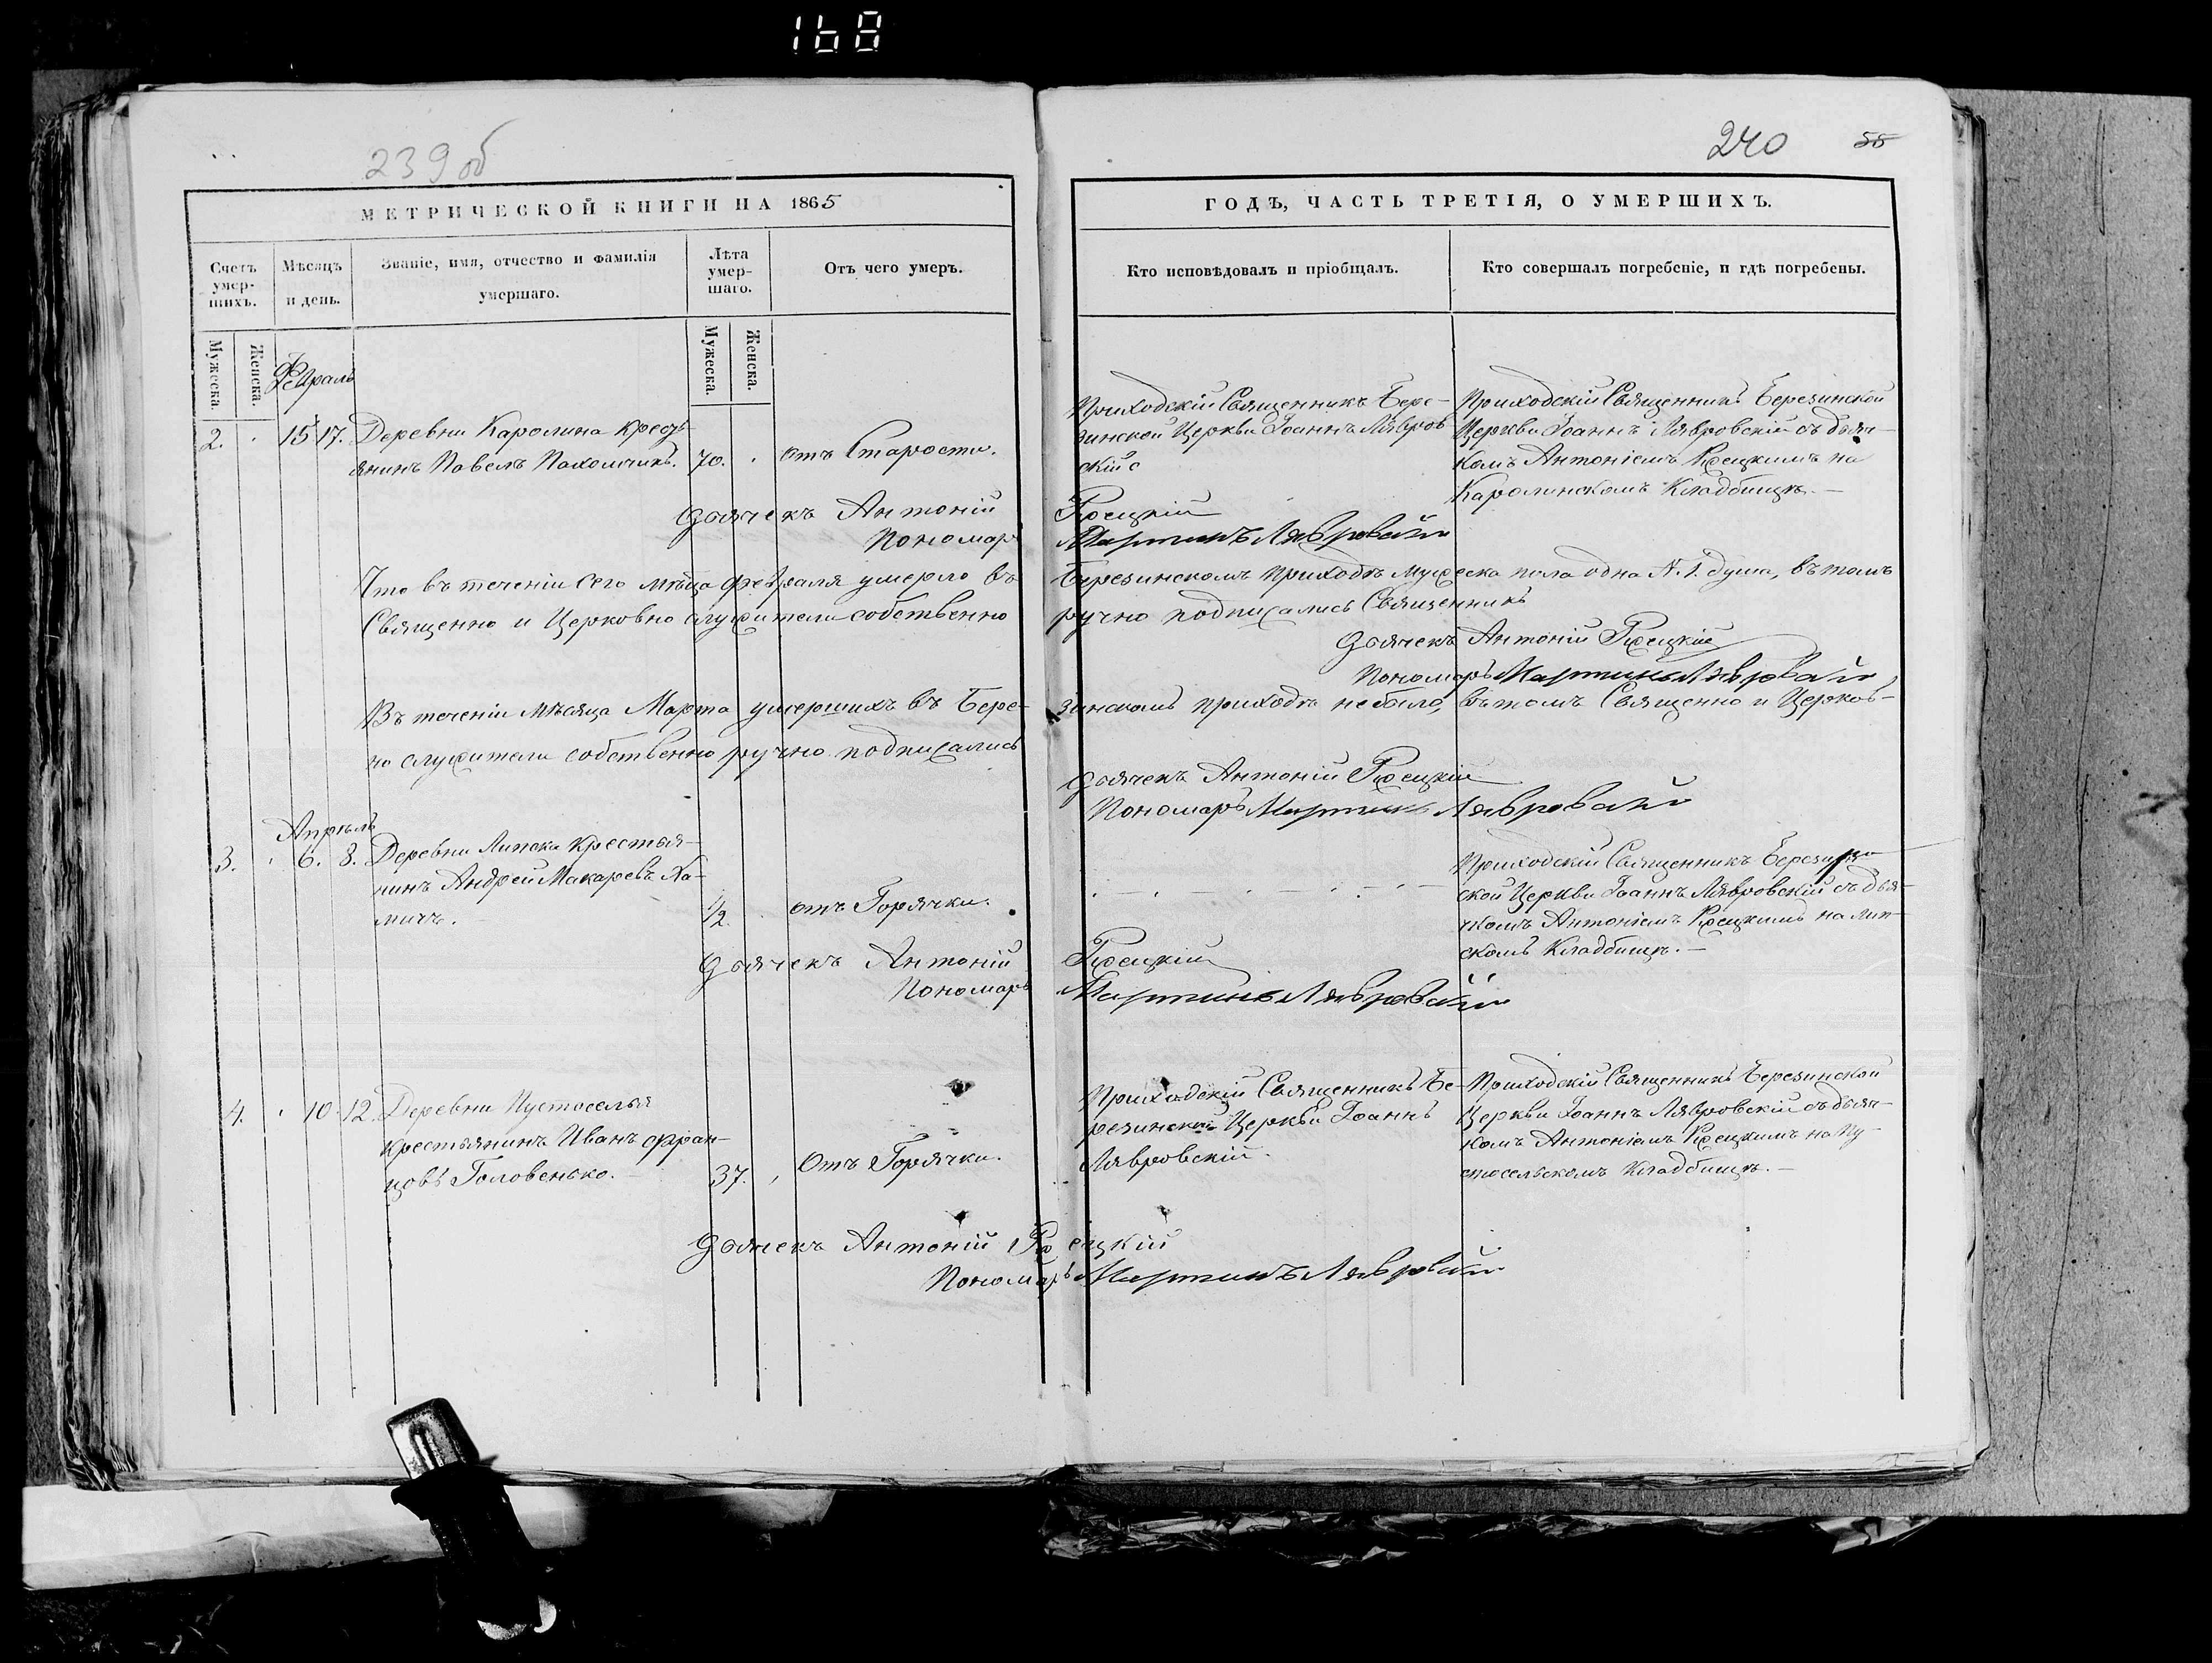 168
239 об
240 55
МЕТРИЧЕСКОЙ КНИГИ НА 1865
ГОДЪ, ЧАСТЬ ТРЕТІЯ, О УМЕРШИХЪ.
Счетъ умер-
шихъ.
Мѣсяцъ
и день.
Званіе, имя, отчество и фамилія
умершаго.
Лѣта
умер-
шаго.
Отъ чего умеръ.
Кто исповѣдовалъ и пріобщалъ.
Кто совершалъ погребеніе, и гдѣ погребены.
Мужеска.
Женска.
Мужеска.
Женска.
Февраль
2. 15 17. Деревни Каролина Кресть
янинъ Павелъ Пахомчикъ. 70. отъ Старости.
Приходскій Священникъ Бере-
зинской Церкви Іоаннъ Лявров
скій
Приходскій Священникъ Березинской
Церкви Іоаннъ Лявровскій съ дьяч-
комъ Антоніемъ на
Каролинскомъ Кладбищѣ.
Дьячекъ Антоній
Пономарь Мартинъ Лявровскій
Что въ теченіи сего мѣсяца февраля умерло въ Березинскомъ приходѣ мужеска пола одна №. 1. душа, въ томъ
Священно и Церковно служители собственно ручно подписались Священникъ
Дьячекъ Антоній
Пономарь Мартинъ Лявровскій
Въ теченіи мѣсяца Марта умершихъ въ Бере- зинскомъ приходѣ небыло, въ томъ Священно и Церков-
но служители собственно ручно подписались
Дьячекъ Антоній
Пономарь Мартинъ Лявровскій
Апрѣль
3. 6. 8. Деревни Липска Крестья-
нинъ Андрей Макаревъ Ха-
мичъ. 1/2. отъ Горячки.
Приходскій Священникъ Березин
ской Церкви Іоаннъ Лявровскій съ дья-
чкомъ Антоніемъ на Лип-
скомъ Кладбищѣ.
Дьячекъ Антоній
Пономарь Мартинъ Лявровскій
4. 10 12. Деревни Пустоселья
Крестьянинъ Иванъ Фран-
цовъ Головенько. 37. Отъ Горячки.
Приходскій Священникъ Бе-
резинской Церкви Іоаннъ
Лявровскій.
Приходскій Священникъ Березинской
Церкви Іоаннъ Лявровскій съ дьяч-
комъ Антоніемъ на Пу-
стосельскомъ Кладбищѣ.
Дьячекъ Антоній
Пономарь Мартинъ Лявровскій